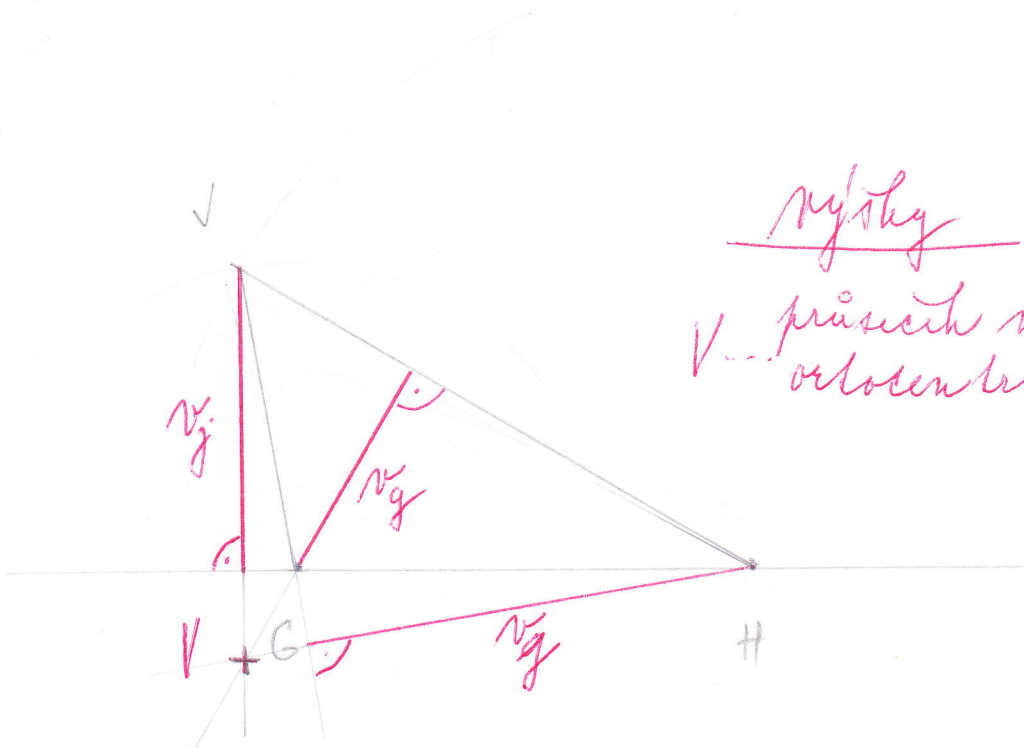 J
výšky
V ... průsečík
ortocentr
v_j
v_g
V
G
v_g
H